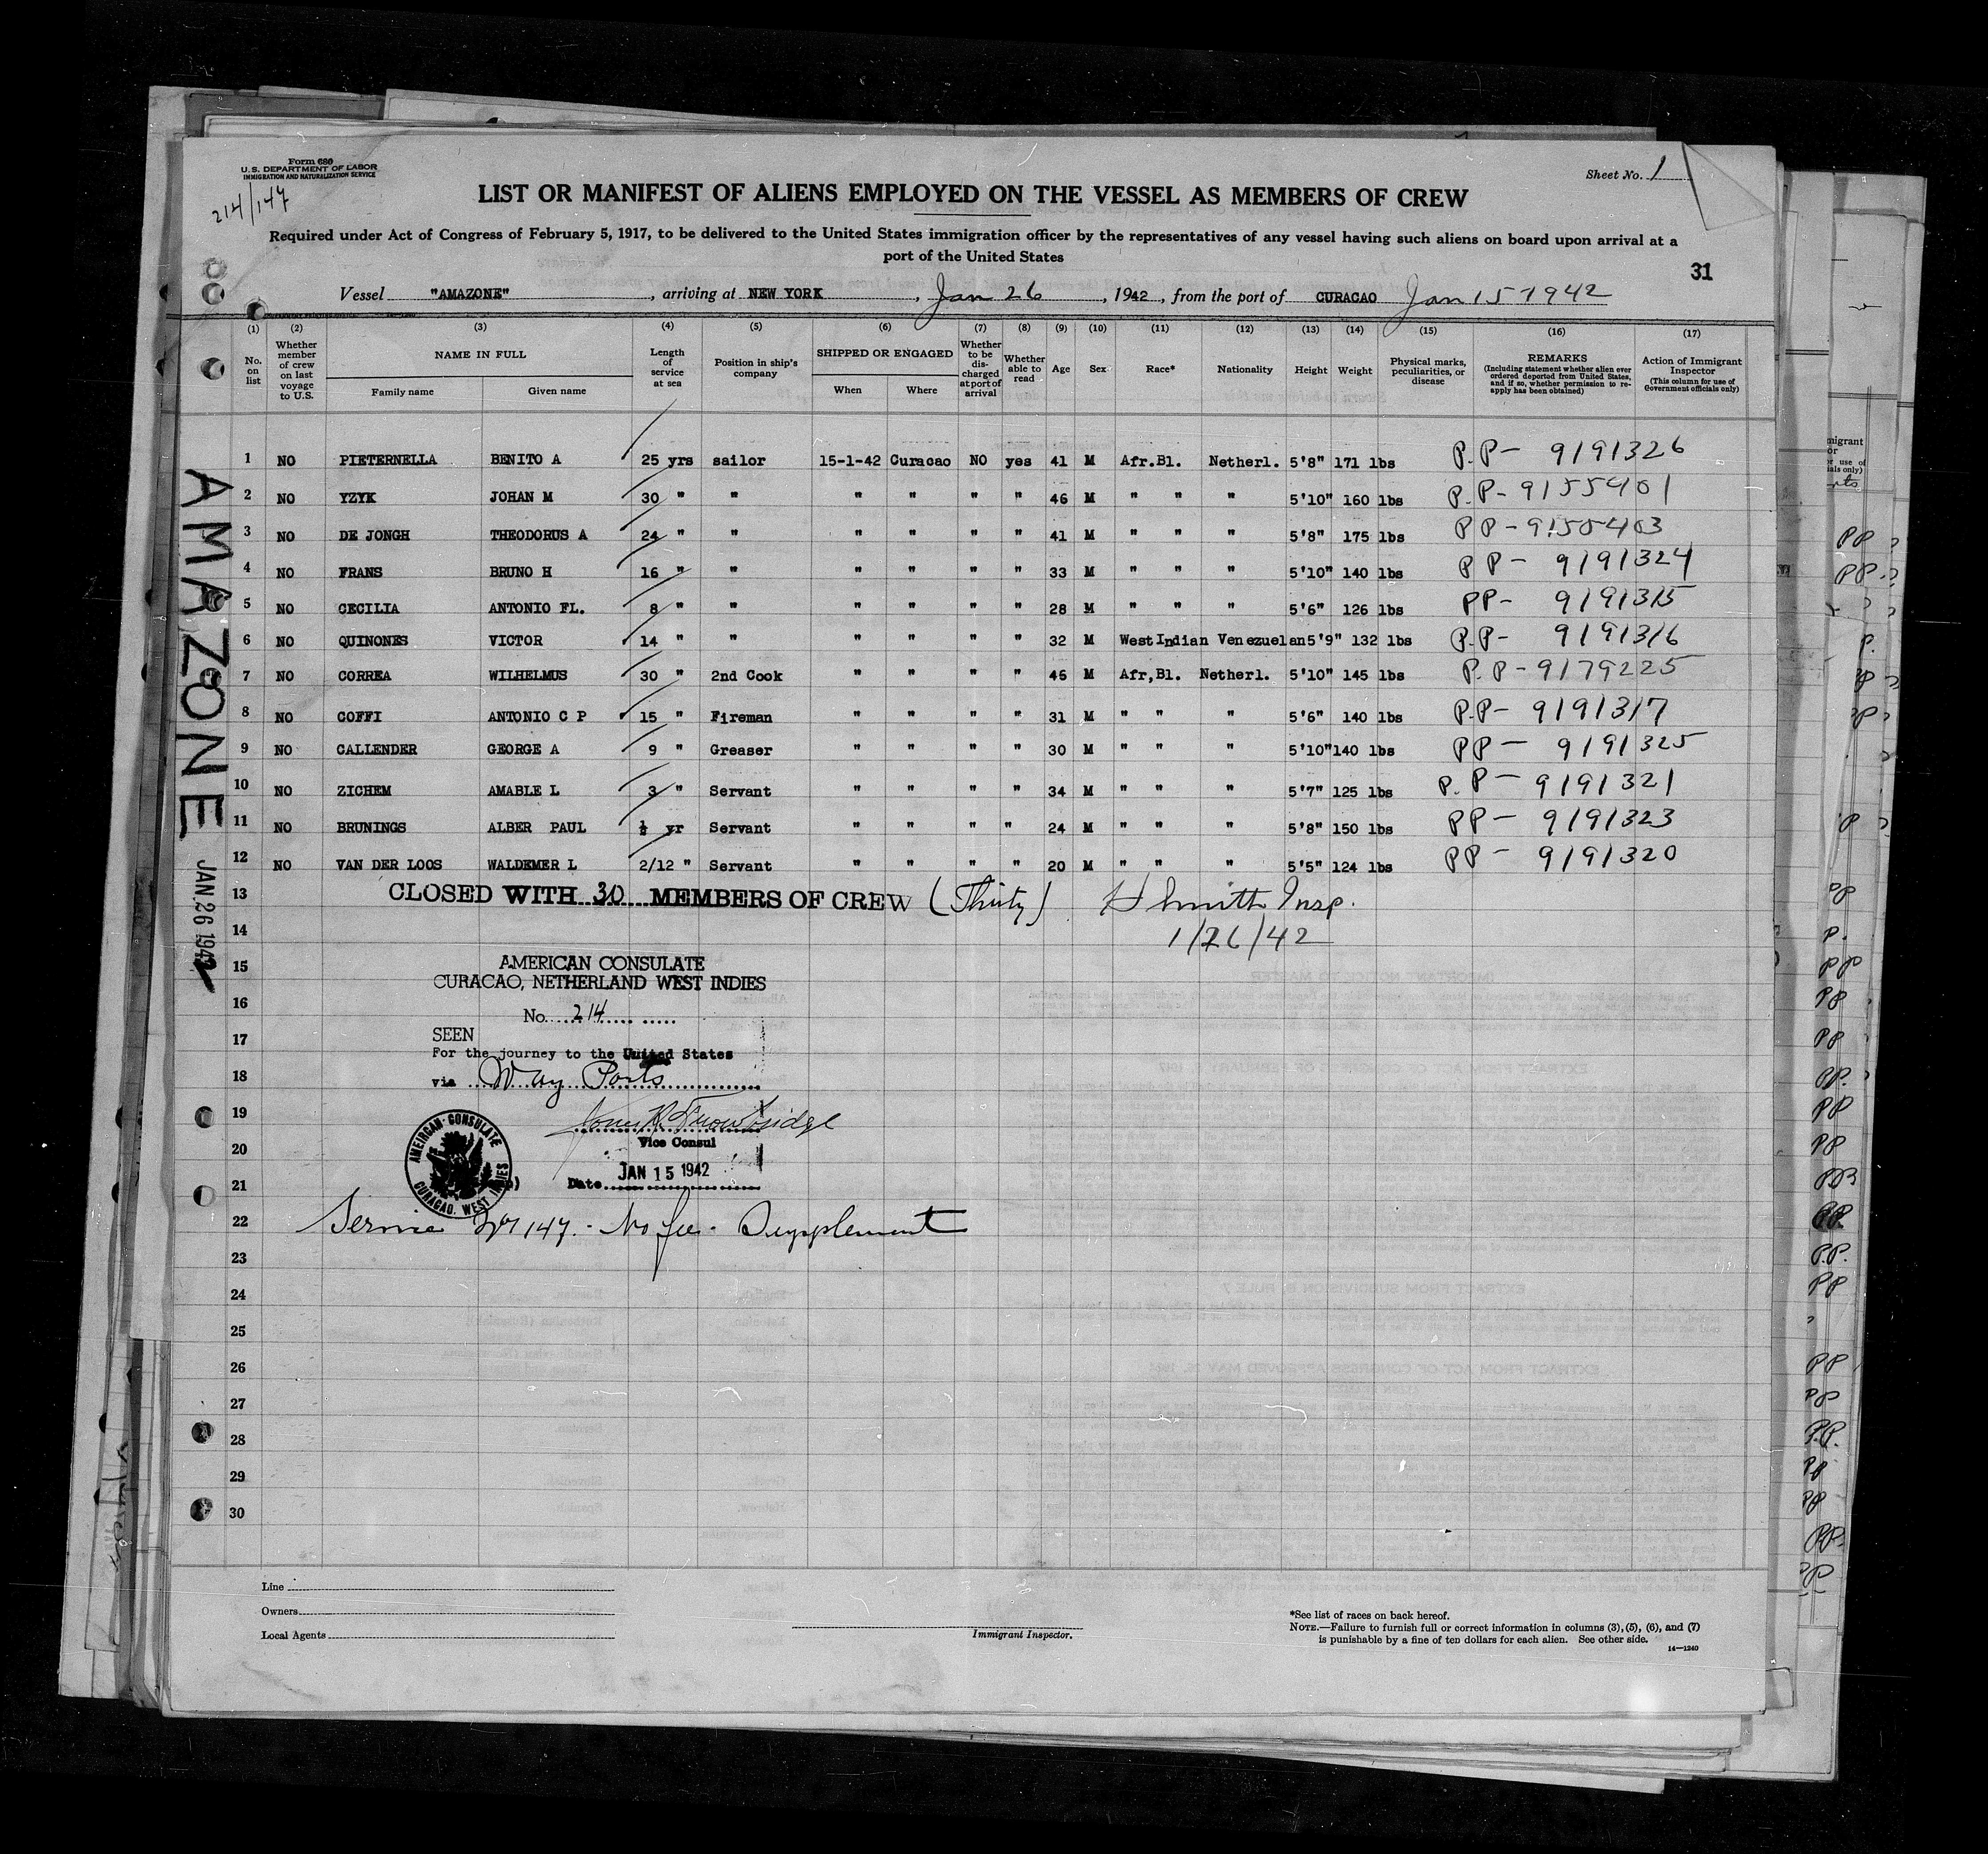 Form 680
U. S. DEPARTMENT OF LABOR
IMMIGRATION AND NATURALIZATION SERVICE
214/147
Sheet No. 1
LIST OR MANIFEST OF ALIENS EMPLOYED ON THE VESSEL AS MEMBERS OF CREW
Required under Act of Congress of February 5, 1917, to be delivered to the United States immigration officer by the representatives of any vessel having such aliens on board upon arrival at a
port of the United States
31
Vessel "AMAZONE", arriving at NEW YORK, Jan 26, 1942, from the port of CURACAO Jan 15 1942
(1) (2) (3) (4) (5) (6) (7) (8) (9) (10) (11) (12) (13) (14) (15) (16) (17)
No. on list
Whether member of crew on last voyage to U.S.
NAME IN FULL
Family name
Given name
Length of service at sea
Position in ship's company
SHIPPED OR ENGAGED
When
Where
Whether to be discharged at port of arrival
Whether able to read
Age
Sex
Race*
Nationality
Height
Weight
Physical marks, peculiarities, or disease
REMARKS
(Including statement whether alien ever ordered deported from United States, and if so, whether permission to reapply has been obtained)
Action of Immigrant Inspector
(This column for use of Government officials only)
1 NO PIETERNELLA BENITO A 25 yrs sailor 15-1-42 Curacao NO yes 41 M Afr.Bl. Netherl. 5'8" 171 lbs P.P- 9191326
2 NO YZYK JOHAN M 30 " " " " " " 46 M " " " 5'10" 160 lbs P.P- 9155401
3 NO DE JONGH THEODORUS A 24 " " " " " " 41 M " " " 5'8" 175 lbs PP-9150403
4 NO FRANS BRUNO H 16 " " " " " " 33 M " " " 5'10" 140 lbs PP- 9191324
5 NO CECILIA ANTONIO FL. 8 " " " " " " 28 M " " " 5'6" 126 lbs PP- 9191315
6 NO QUINONES VICTOR 14 " " " " " " 32 M West Indian Venezuelan 5'9" 132 lbs P.P- 9191316
7 NO CORREA WILHELMUS 30 " 2nd Cook " " " " 46 M Afr,Bl. Netherl. 5'10" 145 lbs P.P-9179225
8 NO COFFI ANTONIO C P 15 " Fireman " " " " 31 M " " " 5'6" 140 lbs P.P- 9191317
9 NO CALLENDER GEORGE A 9 " Greaser " " " " 30 M " " " 5'10" 140 lbs PP- 9191325
10 NO ZICHEM AMABLE L 3 " Servant " " " " 34 M " " " 5'7" 125 lbs P.P- 9191321
11 NO BRUNINGS ALBER PAUL ½ yr Servant " " " " 24 M " " " 5'8" 150 lbs PP- 9191323
12 NO VAN DER LOOS WALDEMER L 2/12 " Servant " " " " 20 M " " " 5'5" 124 lbs PP- 9191320
13 CLOSED WITH 30 MEMBERS OF CREW (Thirty) H Smith Insp.
14 1/26/42
15 AMERICAN CONSULATE
CURACAO, NETHERLAND WEST INDIES
16 No. 214
17 SEEN
For the journey to the United States
18 via Way Ports
19
Vice Consul
20
Date JAN 15 1942
21
AMERICAN CONSULATE CURACAO, WEST INDIES
22 Service No 147. - No fee - Supplement
23
24
25
26
27
28
29
30
AMAZONE
JAN. 26 1942
Line
Owners
Local Agents
Immigrant Inspector.
*See list of races on back hereof.
NOTE.—Failure to furnish full or correct information in columns (3), (5), (6), and (7)
is punishable by a fine of ten dollars for each alien. See other side.
14—1240